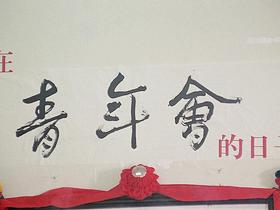 在
青年會
的日